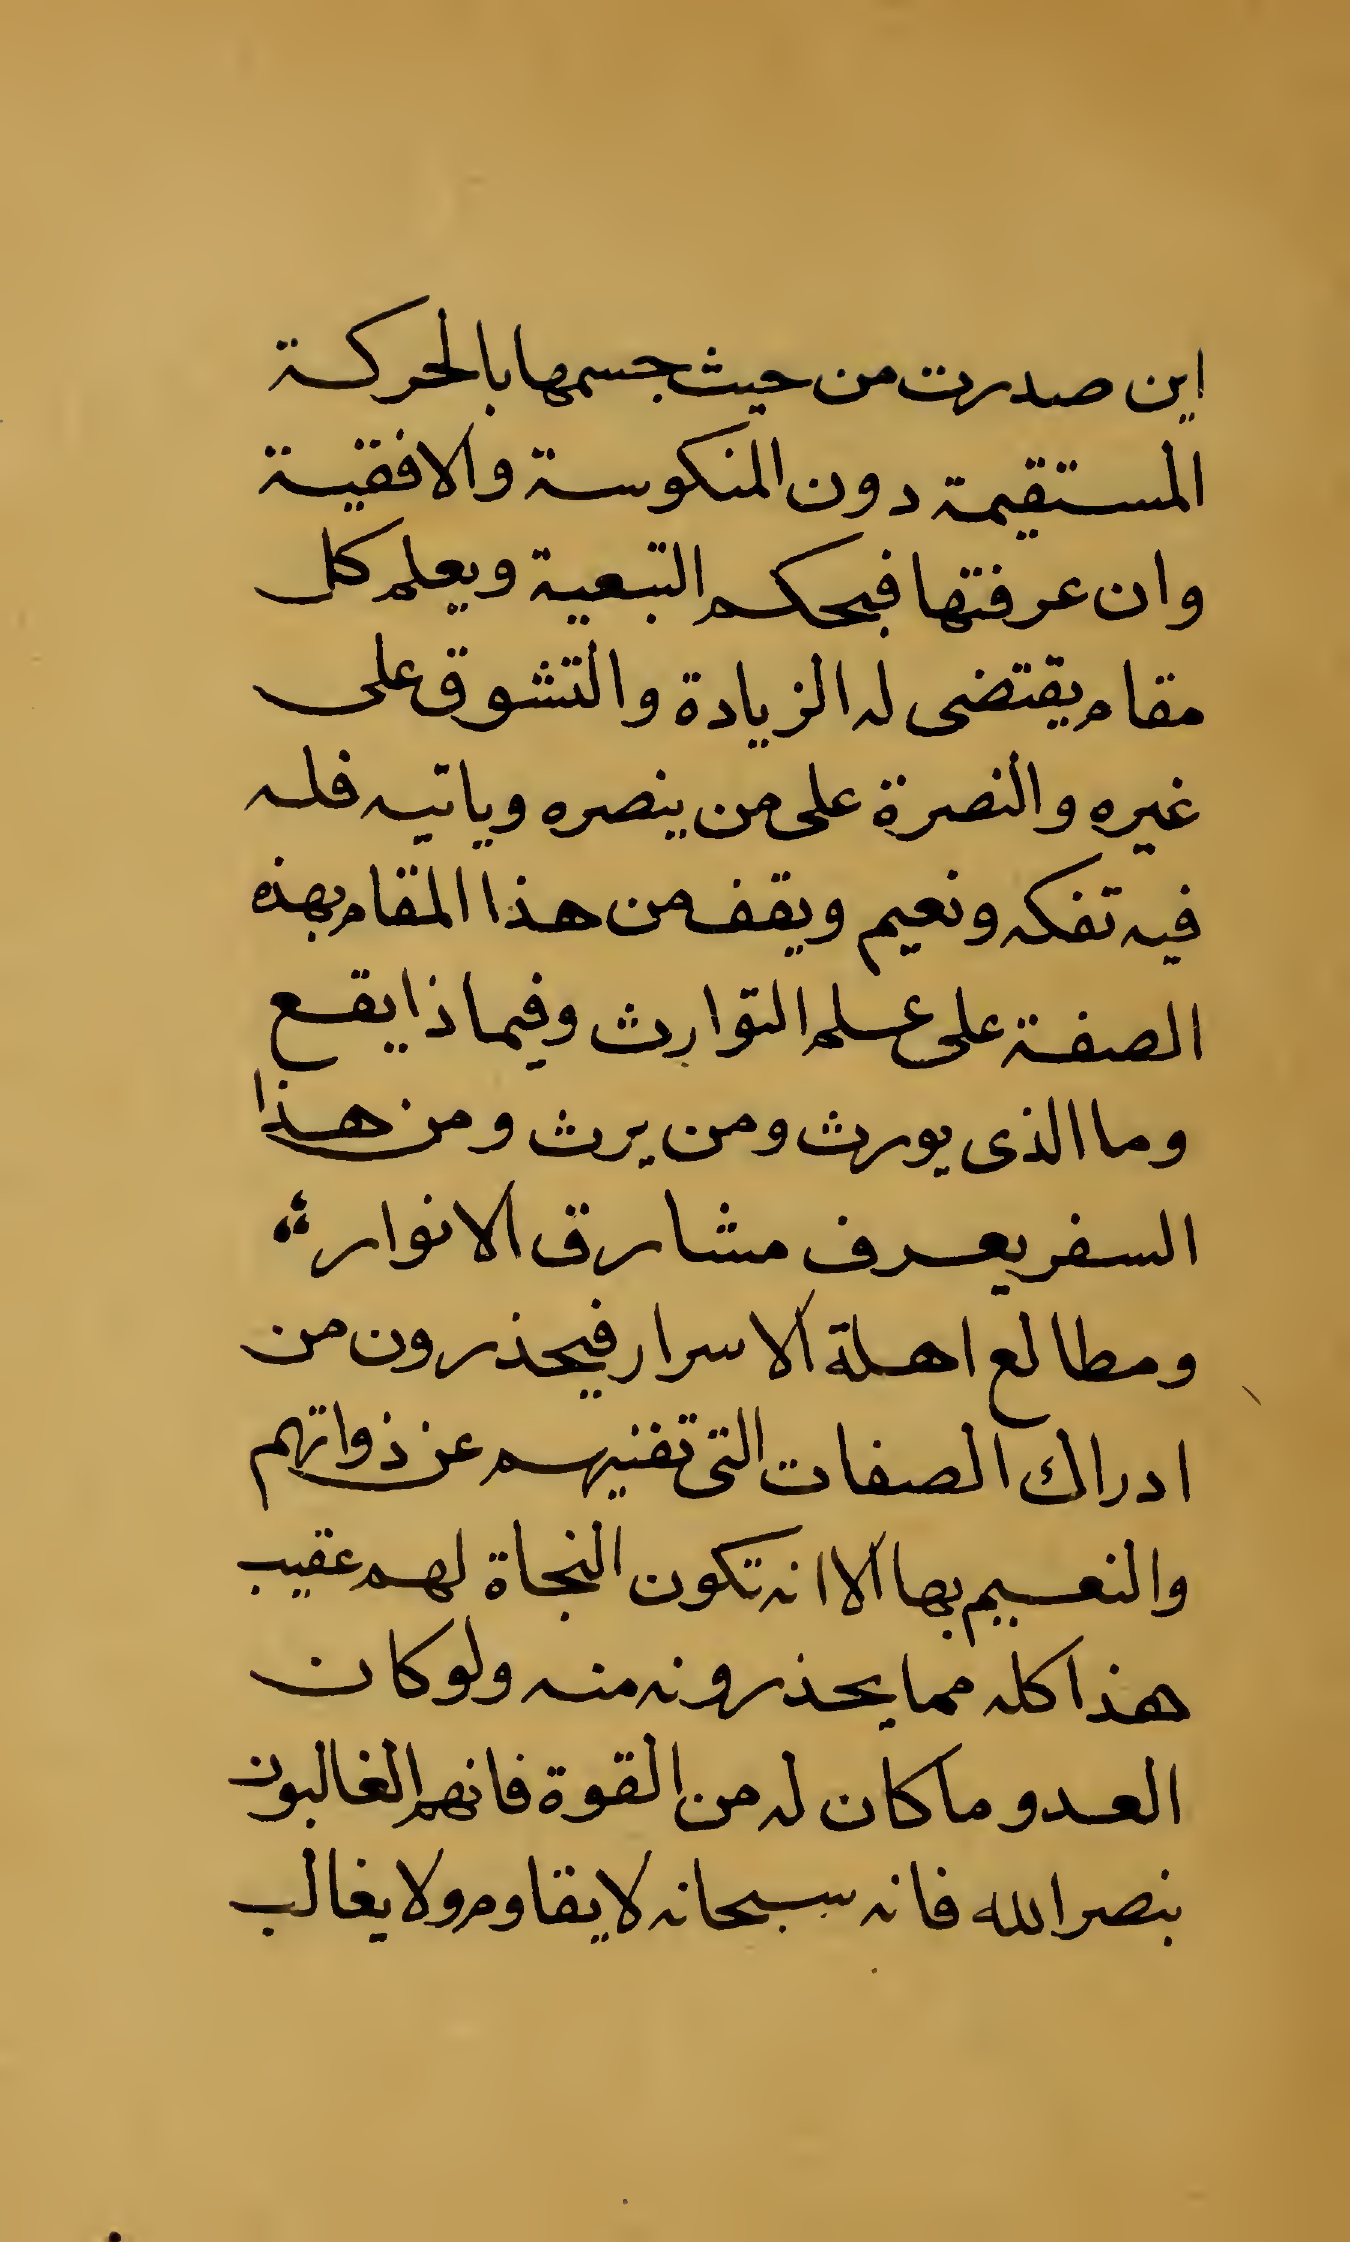 اين صدرت من حيث جسمها بالحركة
المستقيمة دون المنكوسة والافقية
وان عرفتها فبحكم التبعية ويعلم كل
مقام يقتضى له الزيادة والتشوق على
غيره والنصرة على من ينصره وياتيه فله
فيه تفكه ونعيم ويقف من هذا المقام بهذه
الصفة على علم التوارث وفيما ذا يقع
وما الذى يورث ومن يرث ومن هذا
السفر يعرف مشارق الانوار
ومطالع اهلة الاسرار فيحذرون من
ادراك الصفات التى تفنيهم عن ذواتهم
والنعيم بها الا انه تكون النجاة لهم عقيب
هذا كله مما يحذرونه منه ولو كان
العدو ما كان له من القوة فانهم الغالبون
بنصر الله فانه سبحانه لا يقاوم ولا يغالب